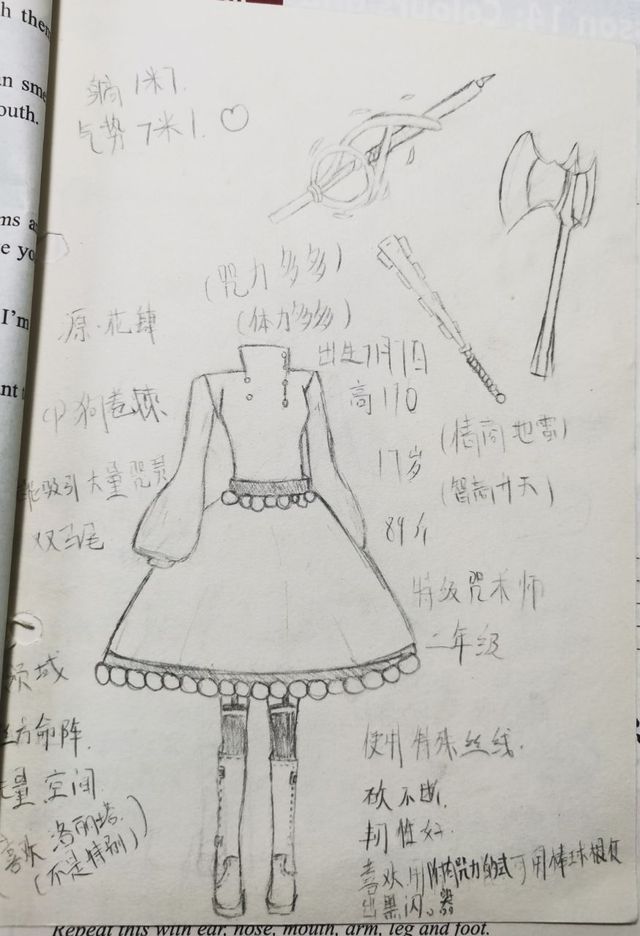 h them
n sm
outh.
ms a
e yo
I'm
nt
son 14: Colour
身高 1米7.
气势 7米1. ♡
(咒力多多)
(体力多多)
源·花肆
出生7月7日
高170
17岁
(情商地雷)
(智商升天)
能吸引大量咒灵
双马尾
89斤
特级咒术师
二年级
领域
方命阵.
量空间
喜欢洛丽塔
(不是特别)
使用特殊丝线.
砍不断.
韧性好.
喜欢用附咒力的 可用棒球棍
出黑闪。
Repeat this with ear, nose, mouth, arm, leg and foot.